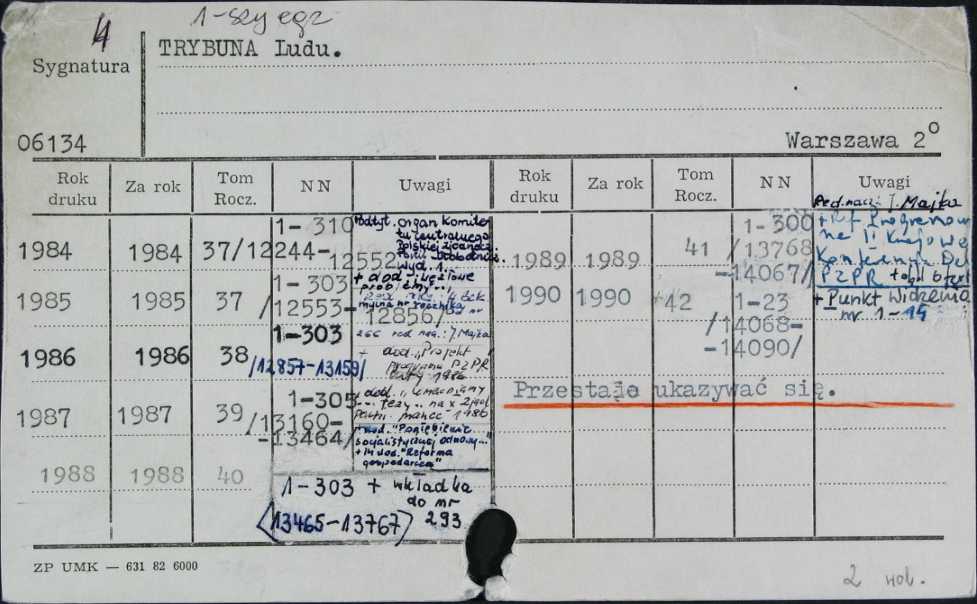 4 1-szy egz
TRYBUNA Ludu.
Sygnatura
06134 Warszawa 2°
Rok druku Za rok Tom Rocz. NN Uwagi Rok druku Za rok Tom Rocz. NN Uwagi
Red. nacz. J. Majka
1984 1984 37 1-310 /12244-12552
Podtyt. organ Komitetu Centralnego
Polskiej Zjednocz.
Partii Robotnicz.
wyd. 1.
1985 1985 37 1-303 /12553-12856/
+ dod. węzłowe
problemy
1986 1986 38 1-303 /12857-13159/
red. nacz.: J. Majka
+ dod. "Projekt
programu PZPR
1986
1987 1987 39 1-305 /13160-13464/
+ dod.
na X Zjazd
Partii marzec 1986
+ dod. "Pogłębienie
socjalistycznej odnowy..."
+ dod. "Reforma
gospodarcza"
1988 1988 40 1-303 + wkładka
do nr
293
(13465-13767)
1989 1989 41 1-300 /13768-14067/
+ Ref. Programowe
na II Krajową
Konferencję Del.
PZPR
1990 1990 42 1-23 /14068-14090/
+ Punkt Widzenia
nr 1-14
Przestaje ukazywać się.
ZP UMK — 631 82 6000
2 wol.